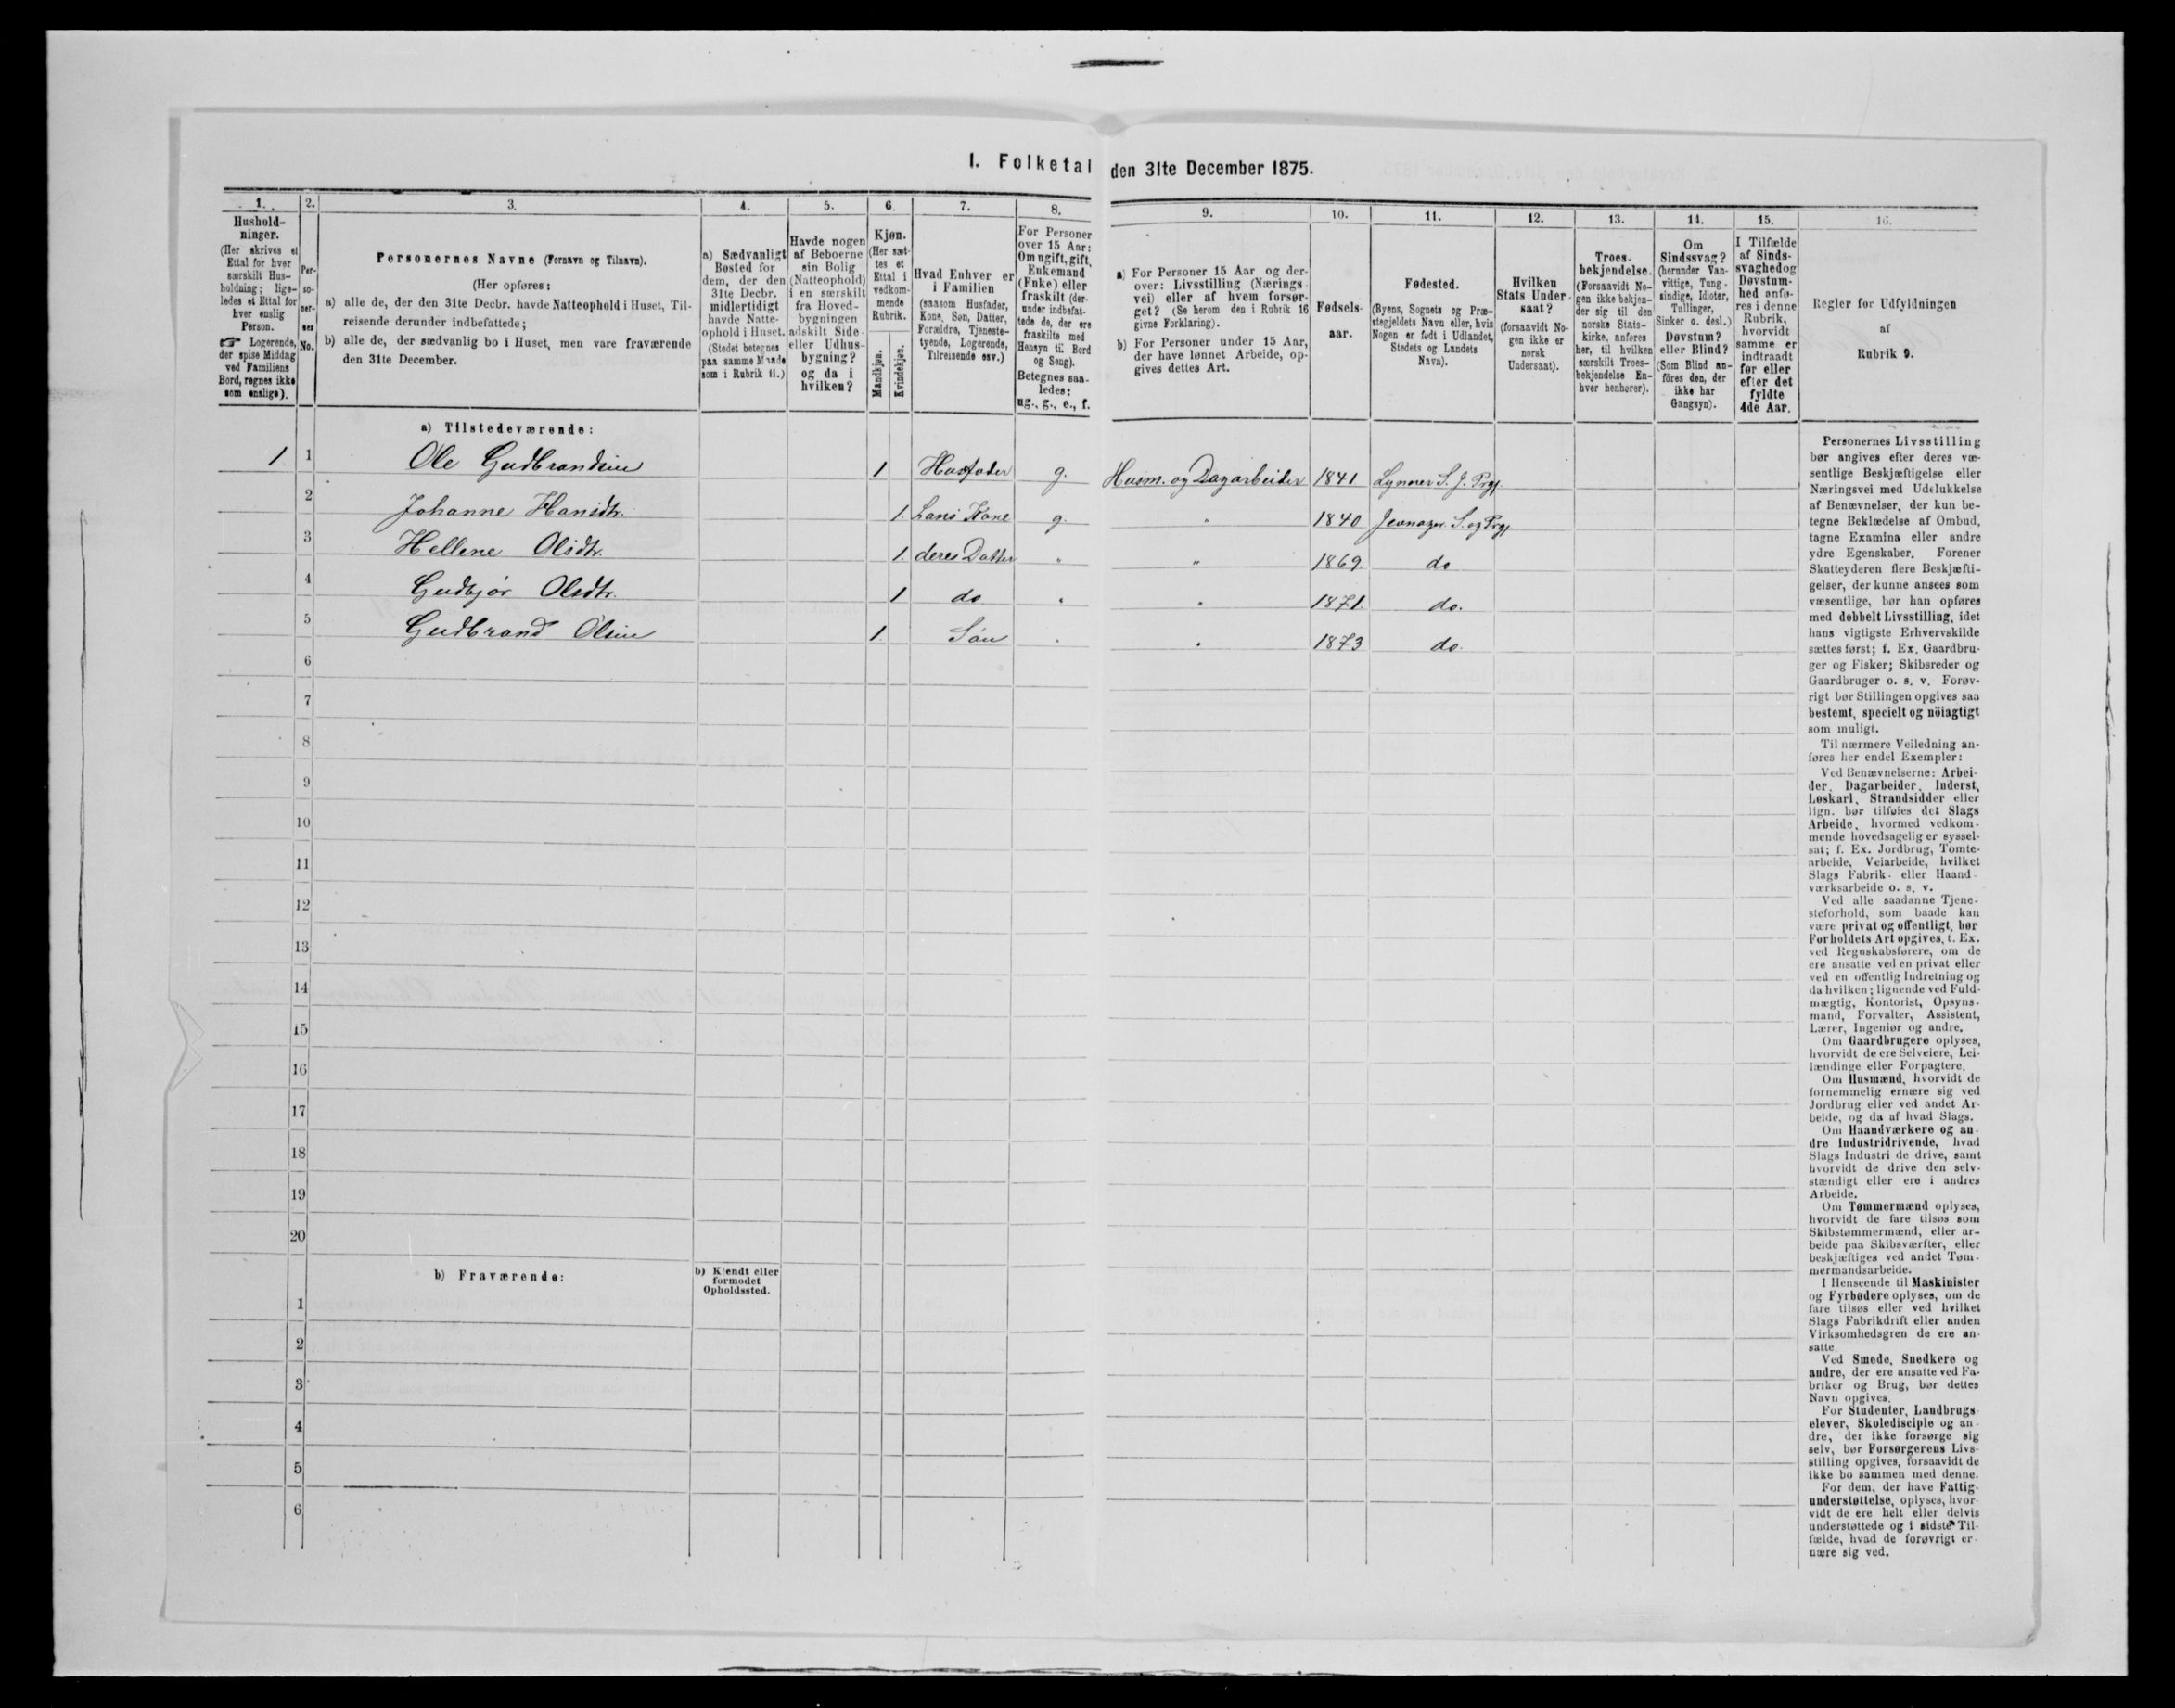 I. Folketal den 31te December 1875.
1. 2. 3. 4. 5. 6. 7. 8. 9. 10. 11. 12. 13. 14. 15. 16.
Hushold-
ninger.
(Her skrives et
Ettal for hver
særskilt Hus-
holdning; lige-
ledes et Ettal for
hver enslig
Person.
☞ Logerende,
der spise Middag
ved Familiens
Bord, regnes ikke
som enslige).
Per-
so-
ner-
nes
No.
Personernes Navne (Fornavn og Tilnavn).
(Her opføres:
a) alle de, der den 31te Decbr. havde Natteophold i Huset, Til-
reisende derunder indbefattede;
b) alle de, der sædvanlig bo i Huset, men vare fraværende
den 31te December.
a) Sædvanligt
Bosted for
dem, der den
31te Decbr.
midlertidigt
havde Natte-
ophold i Huset.
(Stedet betegnes
paa samme Maade
som i Rubrik 11.)
Havde nogen
af Beboerne
sin Bolig
(Natteophold)
i en særskilt
fra Hoved-
bygningen
adskilt Side-
eller Udhus-
bygning?
og da i
hvilken?
Kjøn.
(Her sæt-
tes et
Ettal i
vedkom-
mende
Rubrik.
Mandkjøn.
Kvindekjøn.
Hvad Enhver er
i Familien
(saasom Husfader,
Kone, Søn, Datter,
Forældre, Tjeneste-
tyende, Logerende,
Tilreisende osv.)
For Personer
over 15 Aar:
Om ugift, gift,
Enkemand
(Enke) eller
fraskilt (der-
under indbefat-
tede de, der ere
fraskilte med
Hensyn til Bord
og Seng).
Betegnes saa-
ledes:
ug., g., e., f.
a) For Personer 15 Aar og der-
over: Livsstilling (Nærings-
vei) eller af hvem forsør-
get? (Se herom den i Rubrik 16
givne Forklaring).
b) For Personer under 15 Aar,
der have lønnet Arbeide, op-
gives dettes Art.
Fødsels-
aar.
Fødested.
(Byens, Sognets og Præ-
stegjeldets Navn eller, hvis
Nogen er født i Udlandet,
Stedets og Landets
Navn).
Hvilken
Stats Under-
saat?
(forsaavidt No-
gen ikke er
norsk
Undersaat).
Troes-
bekjendelse.
(Forsaavidt No-
gen ikke bekjen-
der sig til den
norske Stats-
kirke, anføres
her, til hvilken
særskilt Troes-
bekjendelse En-
hver henhører).
Om
Sindssvag?
(herunder Van-
vittige, Tung-
sindige, Idioter,
Tullinger,
Sinker o. desl.)
Døvstum?
eller Blind?
(Som Blind an-
føres den, der
ikke har
Gangsyn).
I Tilfælde
af Sinds-
svaghed og
Døvstum-
hed anfø-
res i denne
Rubrik,
hvorvidt
samme er
indtraadt
før eller
efter det
fyldte
4de Aar.
Regler for Udfyldningen
af
Rubrik 9.
a) Tilstedeværende:
1 1 Ole Gudbrandsen 1 Husfader g. Husm. og Dagarbeider 1841 Lynner S. J. Prgj.
2 Johanne Hansdtr. 1. hans Kone g. " 1840 Jevnager S. og Prgj
3 Hellene Olsdtr. 1. deres Datter " " 1869. do
4 Gudbjør Olsdtr. 1 do " " 1871. do.
5 Gudbrand Olsen 1. Søn " " 1873 do.
6
7
8
9
10
11
12
13
14
15
16
17
18
19
20
b) Fraværende:
b) Kjendt eller
formodet
Opholdssted.
1
2
3
4
5
6
Personernes Livsstilling
bør angives efter deres væ-
sentlige Beskjæftigelse eller
Næringsvei med Udelukkelse
af Benævnelser, der kun be-
tegne Beklædelse af Ombud,
tagne Examina eller andre
ydre Egenskaber. Forener
Skatteyderen flere Beskjæfti-
gelser, der kunne ansees som
væsentlige, bør han opføres
med dobbelt Livsstilling, idet
hans vigtigste Erhvervskilde
sættes først; f. Ex. Gaardbru-
ger og Fisker; Skibsreder og
Gaardbruger o. s. v. Forøv-
rigt bør Stillingen opgives saa
bestemt, specielt og nöiagtigt
som muligt.
Til nærmere Veiledning an-
føres her endel Exempler:
Ved Benævnelserne: Arbei-
der, Dagarbeider, Inderst,
Løskarl, Strandsidder eller
lign. bør tilføies det Slags
Arbeide, hvormed vedkom-
mende hovedsagelig er syssel-
sat; f. Ex. Jordbrug, Tomte-
arbeide, Veiarbeide, hvilket
Slags Fabrik- eller Haand-
værksarbeide o. s. v.
Ved alle saadanne Tjene-
steforhold, som baade kan
være privat og offentligt, bør
Forholdets Art opgives, t. Ex.
ved Regnskabsførere, om de
ere ansatte ved en privat eller
ved en offentlig Indretning og
da hvilken; lignende ved Fuld-
mægtig, Kontorist, Opsyns-
mand, Forvalter, Assistent,
Lærer, Ingeniør og andre.
Om Gaardbrugere oplyses,
hvorvidt de ere Selveiere, Lei-
lændinge eller Forpagtere.
Om Husmænd, hvorvidt de
fornemmelig ernære sig ved
Jordbrug eller ved andet Ar-
beide, og da af hvad Slags.
Om Haandværkere og an-
dre Industridrivende, hvad
Slags Industri de drive, samt
hvorvidt de drive den selv-
stændigt eller ere i andres
Arbeide.
Om Tømmermænd oplyses,
hvorvidt de fare tilsøs som
Skibstømmermænd, eller ar-
beide paa Skibsværfter, eller
beskjæftiges ved andet Tøm-
mermandsarbeide.
I Henseende til Maskinister
og Fyrbødere oplyses, om de
fare tilsøs eller ved hvilket
Slags Fabrikdrift eller anden
Virksomhedsgren de ere an-
satte.
Ved Smede, Snedkere og
andre, der ere ansatte ved Fa-
briker og Brug, bør dettes
Navn opgives.
For Studenter, Landbrugs-
elever, Skoledisciple og an-
dre, der ikke forsørge sig
selv, bør Forsørgerens Livs-
stilling opgives, forsaavidt de
ikke bo sammen med denne.
For dem, der have Fattig-
understøttelse, oplyses, hvor-
vidt de ere helt eller delvis
understøttede og i sidste Til-
fælde, hvad de forøvrigt er-
nære sig ved.